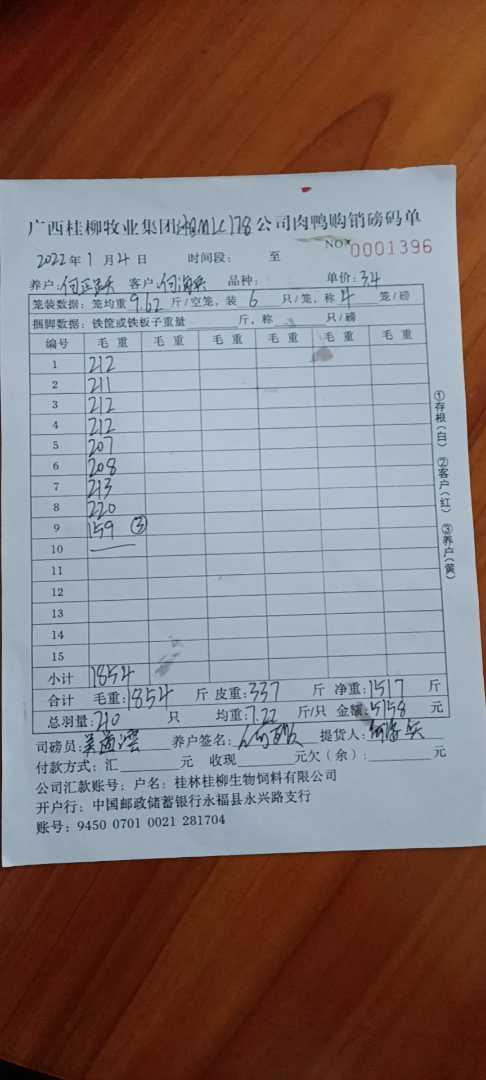 广西桂柳牧业集团 178公司肉鸭购销磅码单
NO 0001396
2022年1月4日 时间段: 至
养户: 客户:何海兵 品种: 单价:3.4
笼装数据:笼均重9.62斤/空笼,装6只/笼,称4笼/磅
捆脚数据:铁筐或铁板子重量 斤,称 只/磅
编号 毛重 毛重 毛重 毛重 毛重 毛重
1 212
2 211
3 212
4 212
5 207
6 208
7 213
8 220
9 159 ③
10
11
12
13
14
15
小计 1854
合计 毛重:1854斤 皮重:337斤 净重:1517斤
总羽量:210只 均重:7.22斤/只 金额:5158元
司磅员: 养户签名: 提货人:何海兵
付款方式:汇 元 收现 元欠(余): 元
公司汇款账号:户名:桂林桂柳生物饲料有限公司
开户行:中国邮政储蓄银行永福县永兴路支行
账号:9450 0701 0021 281704
①存根(白) ②客户(红) ③养户(黄)